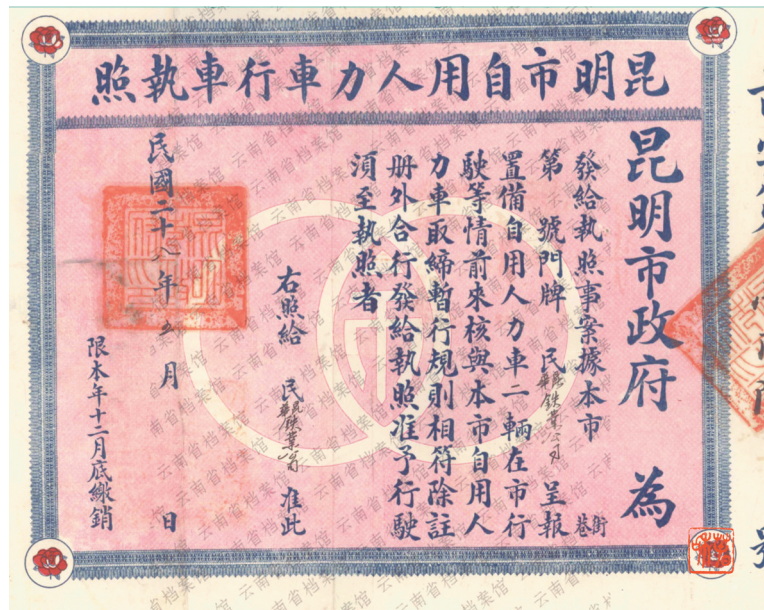 昆明市自用人力車行車執照
昆明市政府 為
發給執照事案據本市 街巷
第 號門牌 民 呈報
置備自用人力車二輛在市行
駛等情前來核與本市自用人
力車取締暫行規則相符除註
冊外合行發給執照准予行駛
須至執照者
右照給 民 准此
民國二十八年 月 日
限本年十二月底繳銷
云南省档案馆